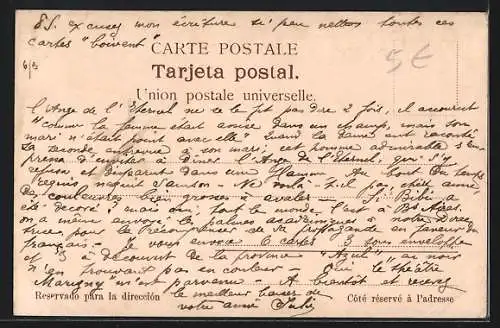 P.S. excusez mon écriture si peu nette toutes ces
cartes "boivent"
6/9
5€
CARTE POSTALE
Tarjeta postal.
Union postale universelle.
l'Ange de l'Eternel ne se le fit pas dire 2 fois, il accourut
"comme la femme était assise dans un champs, mais son
mari n'était point avec elle". Quand la dame eut raconté
la seconde entrevue à son mari, cet homme admirable s'em-
pressa d'inviter à dîner l'Ange de l'Eternel, qui s'y
refusa et disparut dans une flamme. Au bout du temps
requis naquit Samson - Ne voilà-t-il pas, chère amie,
des couleuvres bien grosses à avaler — Bibi a
été décoré! mais oui, tout le monde l'est à
on a même envoyé les palmes académiques à notre Direc
trice pour la récompenser de sa propagande en faveur du
français - Je vous envoie 6 cartes 3 sous enveloppe
et 3 à découvert de la province "Azul" au noir
n'en trouvant pas en couleur - Oui le "théâtre
Marigny m'est parvenu - A bientôt et recevez
Reservado para la dirección le meilleur baiser de Côté réservé à l'adresse
votre amie